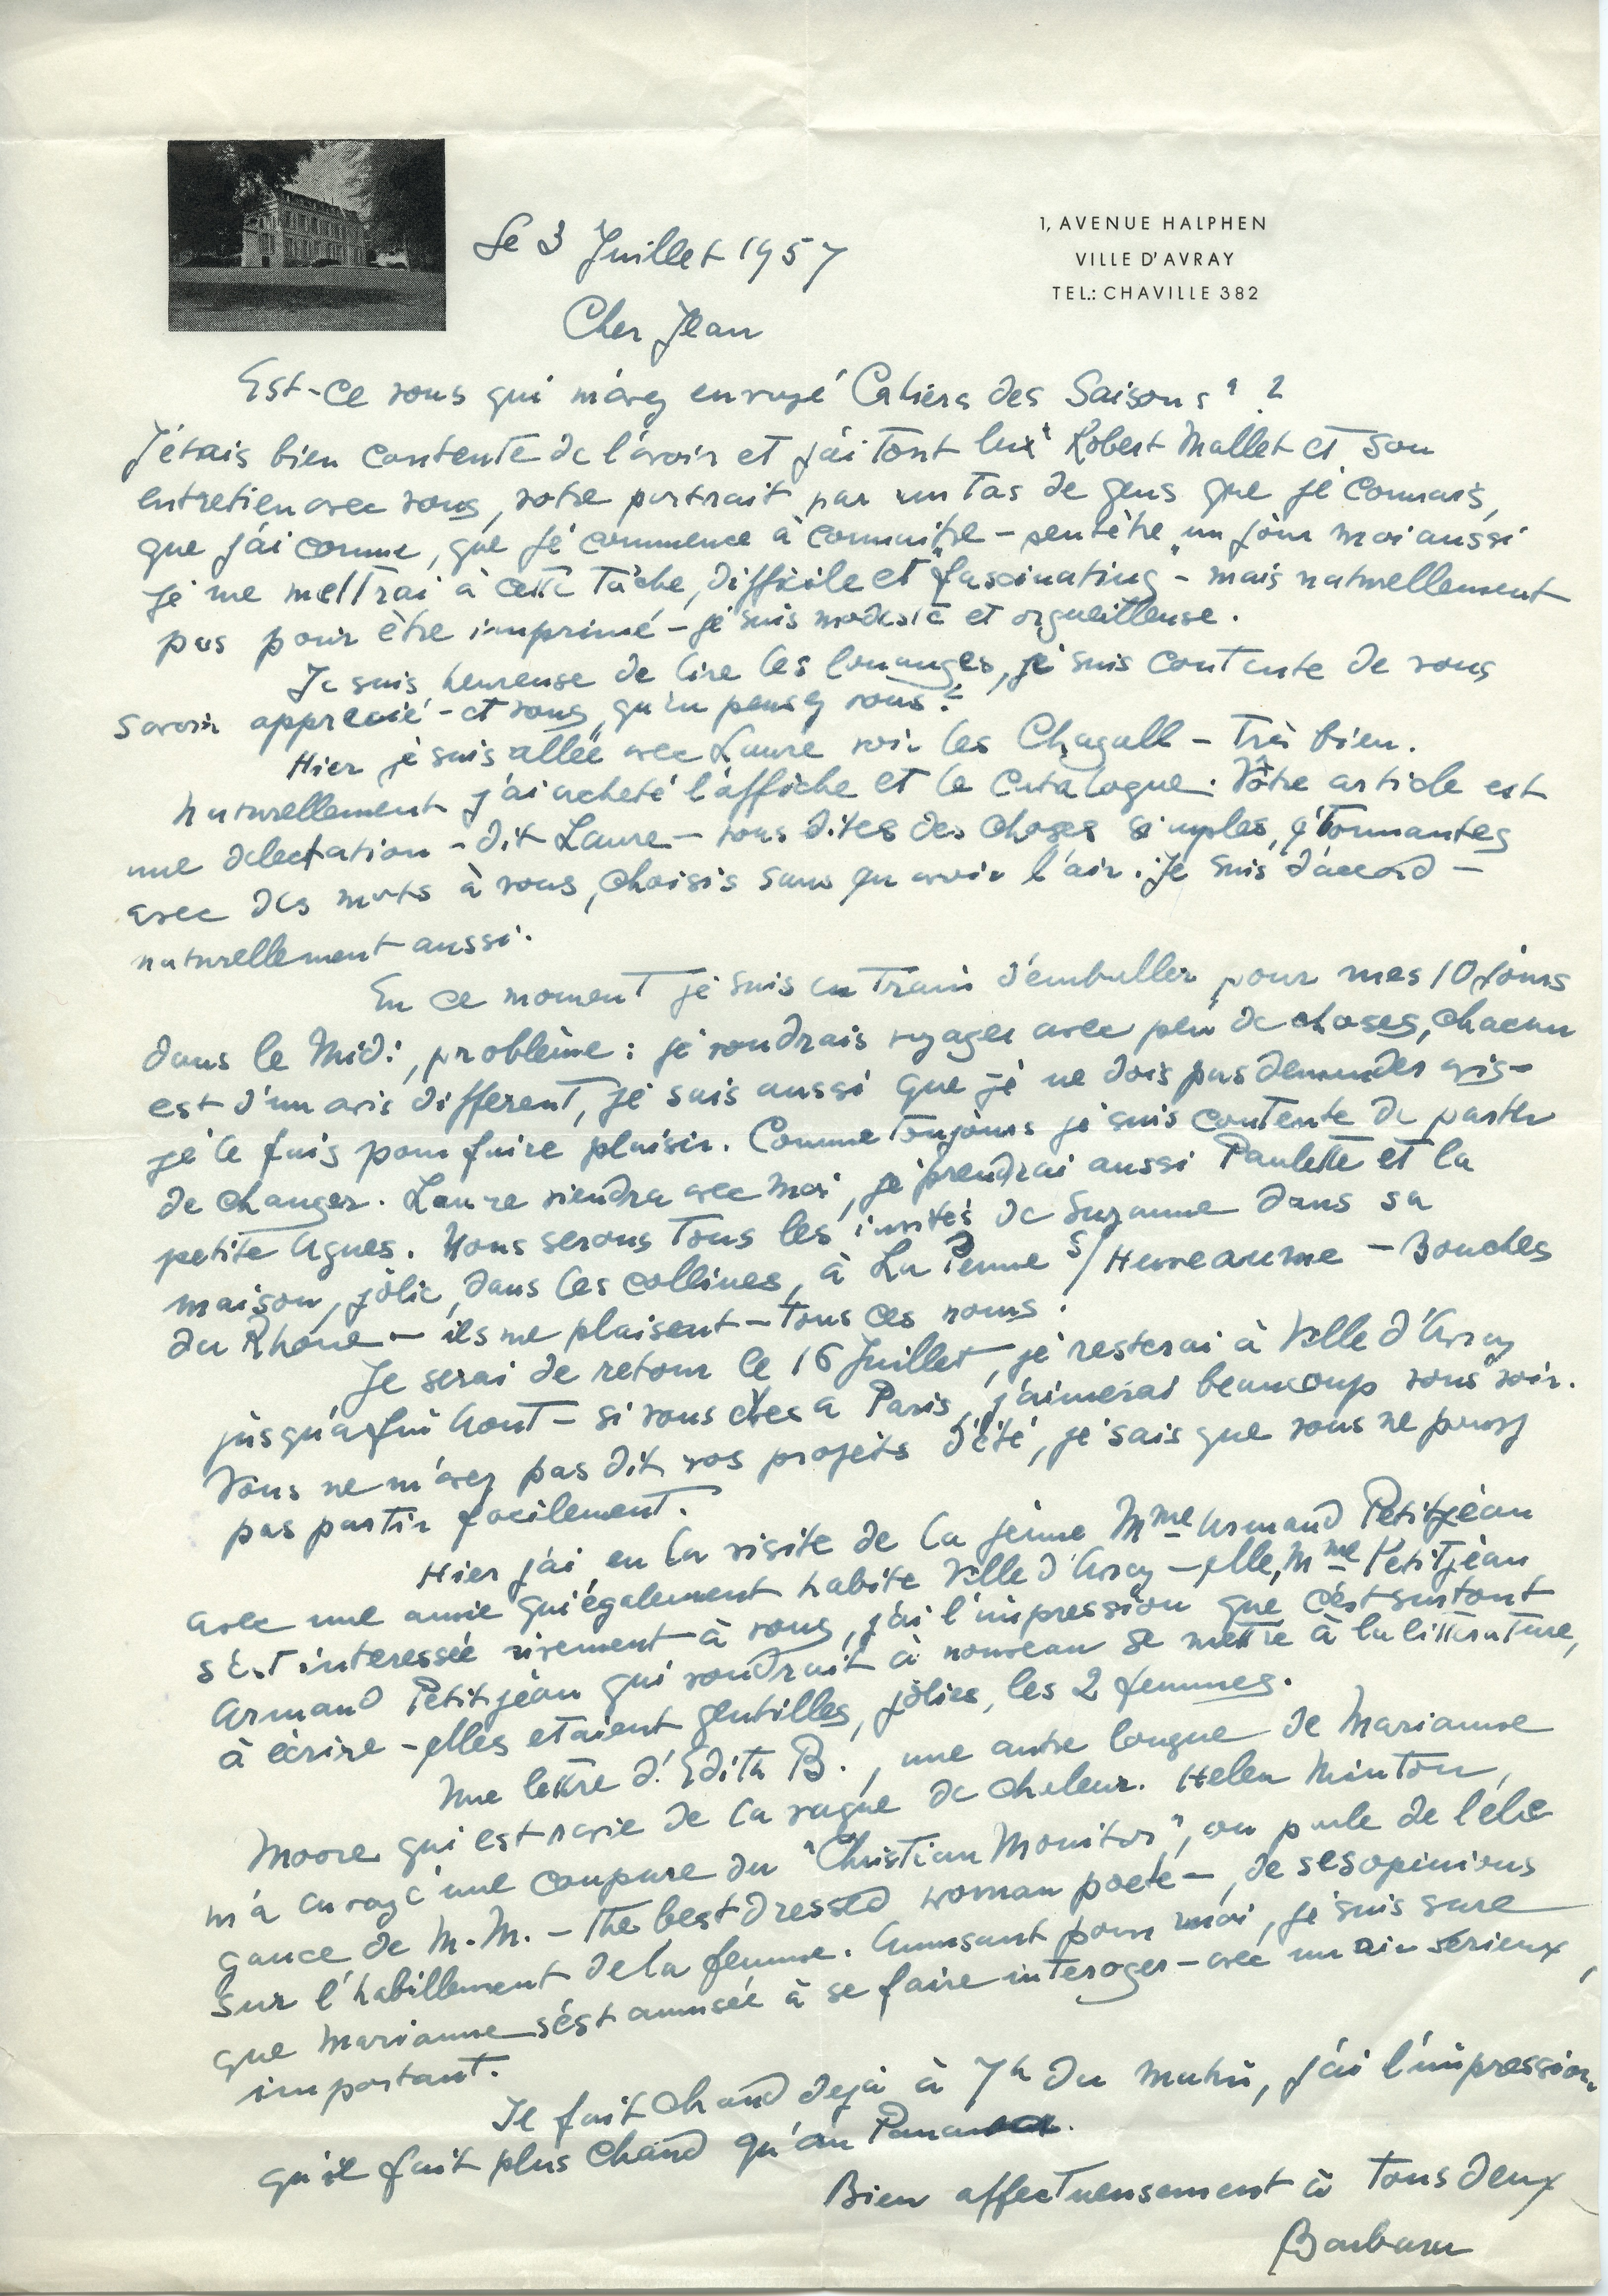 1, AVENUE HALPHEN
VILLE D'AVRAY
TEL.: CHAVILLE 382
Le 3 Juillet 1957
Cher Jean
Est-ce vous qui m'avez envoyé Cahiers des Saisons" ?
J'étais bien contente de l'avoir et j'ai tout lu Robert Mallet et son
entretien avec vous, votre portrait par un tas de gens que je connais,
que j'ai connu, que je commence à connaitre - peutètre un jour moi aussi
je me mettrai à cette tâche, difficile et "fascinating - mais naturellement
pas pour être imprimé - je suis modeste et orgueilleuse.
Je suis heureuse de lire les louanges, je suis contente de vous
savoir apprecié - et vous, qu'en pensez vous ?
Hier je suis allée avec Laure voir les Chagall - Très bien.
Naturellement j'ai acheté l'affiche et le Catalogue. Vôtre article est
une delectation - dit Laure - vous dites des choses simples, étonnantes
avec des mots à vous, choisis sans en avoir l'air. Je suis d'accord -
naturellement aussi.
En ce moment je suis en train d'emballer pour mes 10 jours
dans le Midi, problème : je voudrais voyager avec peu de choses, chacun
est d'un avis different, je sais aussi que je ne dois pas demander avis -
je le fais pour faire plaisir. Comme toujours je suis contente de partir
de changer. Laure viendra avec moi, je prendrai aussi Paulette et la
petite Agnes. Nous serons tous les invités de Suzanne dans sa
maison, jolie, dans les collines, à La Penne s/ Huveaune - Bouches
du Rhone - ils me plaisent - tous ces noms !
Je serai de retour le 16 Juillet, je resterai à Ville d'Avray
jusqu'a fin Aout - si vous etes a Paris, j'aimerai beaucoup vous voir.
Vous ne m'avez pas dit vos projets d'été, je sais que vous ne pouvez
pas partir facilement.
Hier j'ai eu la visite de la jeune Mme Armand Petitjean
avec une amie qui également habite Ville d'Avray - elle, Mme Petitjean
s'est interessée vivement à vous, j'ai l'impression que c'est surtout
Armand Petitjean qui voudrait à nouveau se mettre à la litterature,
à écrire - elles etaient gentilles, jolies, les 2 femmes.
Une lettre d'Edith B., une autre longue de Marianne
Moore qui est ravie de la vague de chaleur. Helen Minton,
m'a envoyé une coupure du "Christian Monitor", on parle de l'ele
gance de M.M. - The best dressed woman poete -, de ses opinions
sur l'habillement de la femme. Amusant pour moi, je suis sure
que Marianne s'est amusée à se faire interoger - avec un air serieux,
important.
Il fait chaud deja à 7h du matin, j'ai l'impression
qu'il fait plus chaud qu'au Panama.
Bien affectueusement à tous deux
Barbara